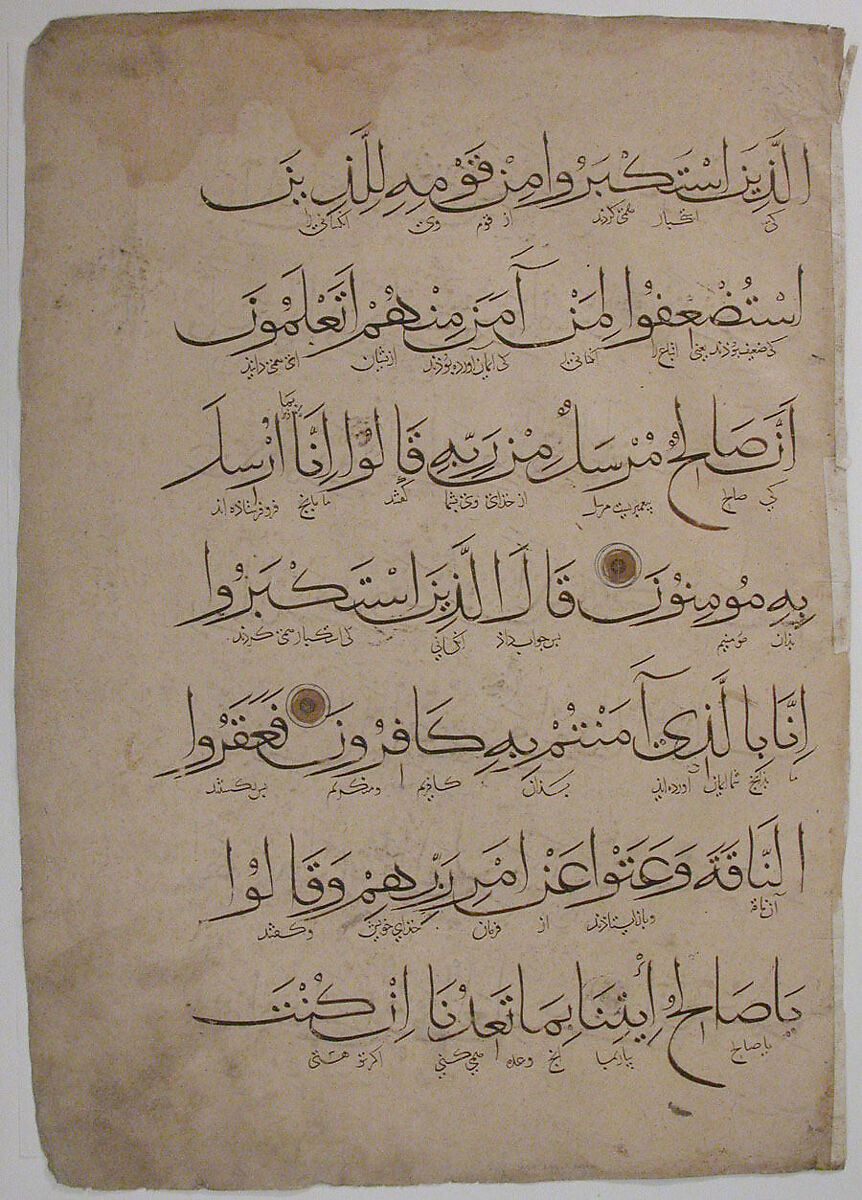 الَّذِينَ اسْتَكْبَرُوا مِنْ قَوْمِهِ لِلَّذِينَ
کی همی کردند از قوم وی
اسْتُضْعِفُوا لِمَنْ آمَنَ مِنْهُمْ اَتَعْلَمُونَ
کی ضعیف بوذند یعنی اتباع را کی ایمان آورده بوذند ازیشان همی دانید
بما
اَنَّ صَالِحٌ مُرْسَلٌ مِنْ رَبِّهِ قَالُوا اِنَّا ارْسِلَ
کی صالح از خذای وی بشما گفتند ما بدانچ فرو فرستاذه اند
بِهِ مُومِنُونَ قَالَ الَّذِينَ اسْتَكْبَرُوا
بذان مومنیم پس جواب داذ کی استکبار همی کردند
اِنَّا بِالَّذِي آمَنْتُمْ بِهِ كَافِرُونَ فَعَقَرُوا
ما بدانچ شما ایمان آورده اید بذان کافریم و منکریم پس بکشتند
النَّاقَةَ وَعَتَوْا عَنْ امْرِ رَبِّهِمْ وَقَالُوا
آن ناقه و باز ایستاذند از فرمان خذای خویش و گفتند
يَا صَالِحُ اِئْتِنَا بِمَا تَعِدُنَا اِنْ كُنْتَ
یا صالح بیار بما آنچ وعده همی کنی اگر تو هستی